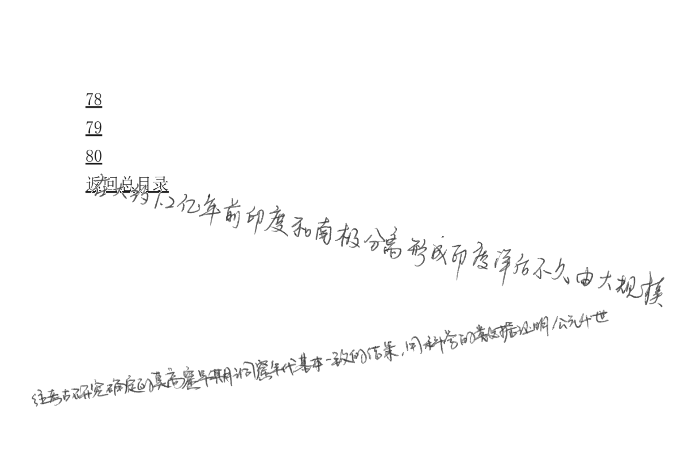 78
79
80
返回总目录
在大约1.2亿年前印度和南极分离形成印度洋后不久由大规模
经考古研究确定的莫高窟早期洞窟年代基本一致的结果,用科学的数据证明公元4世